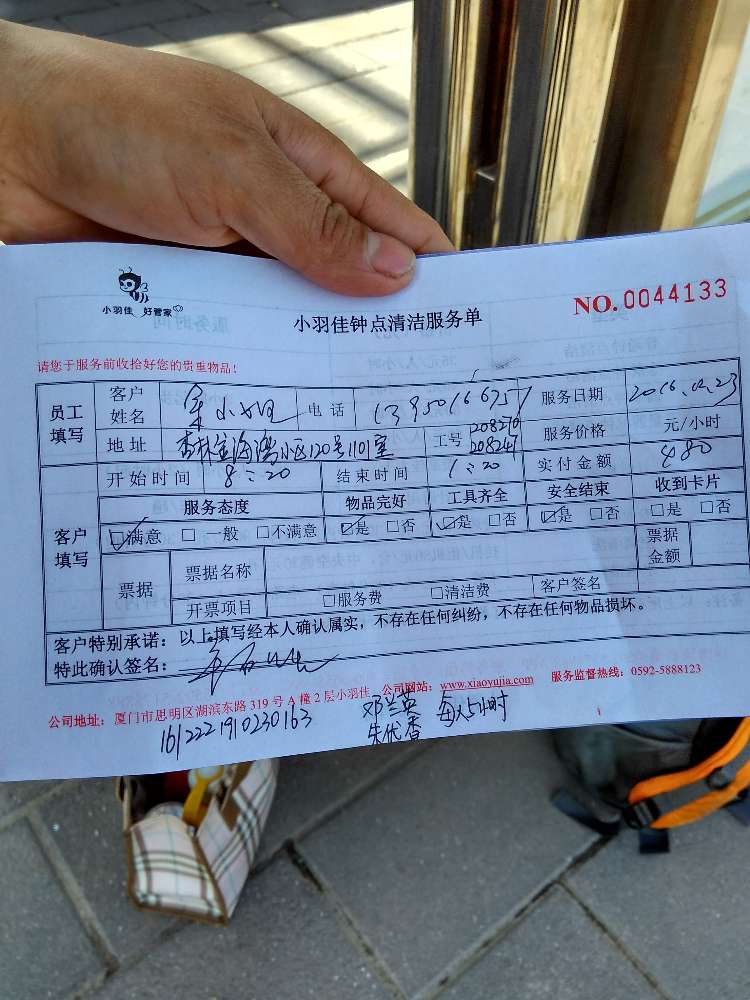 小羽佳 好管家
小羽佳钟点清洁服务单
NO.0044133
请您于服务前收拾好您的贵重物品！
员工填写 客户姓名 小姐 电话 13950166757 服务日期 2016.12.23
地址 杏林金海湾小区120号1101室 工号 208270 208247 服务价格 元/小时
客户填写 开始时间 8:20 结束时间 1:20 实付金额 480
服务态度 物品完好 工具齐全 安全结束 收到卡片
☑满意 □一般 □不满意 ☑是 □否 ☑是 □否 ☑是 □否 □是 □否
票据 票据名称 票据金额
开票项目 □服务费 □清洁费 客户签名
客户特别承诺：以上填写经本人确认属实，不存在任何纠纷，不存在任何物品损坏。
特此确认签名：
公司地址：厦门市思明区湖滨东路 319 号 A 幢 2 层小羽佳 公司网站：www.xiaoyujia.com 服务监督热线：0592-5888123
1612221910230163 邓兰英 每人5小时
朱优香